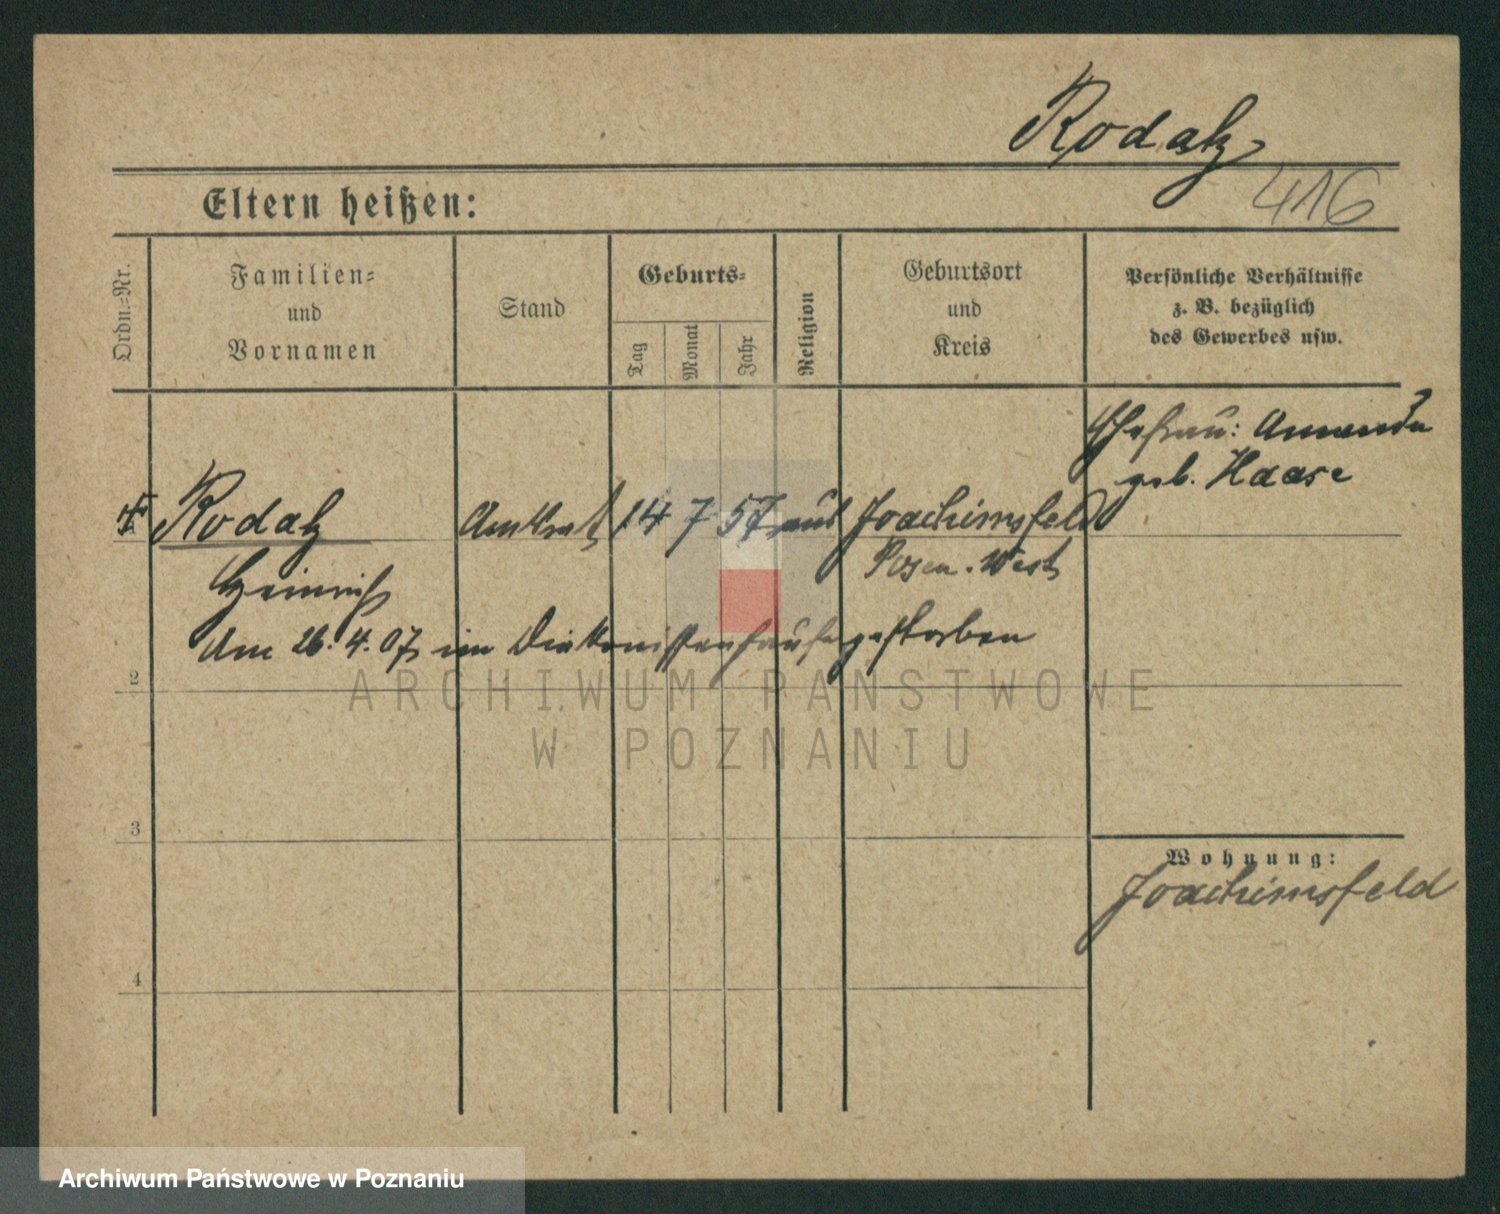 Rodatz
416
Eltern heißen:
Ordn.-Nr.
Familien-
und
Vornamen
Stand
Geburts-
Tag
Monat
Jahr
Religion
Geburtsort
und
Kreis
Persönliche Verhältnisse
z. B. bezüglich
des Gewerbes usw.
Ehefrau: Amanda
geb. Haase
Rodatz Amtsrat 14 7 57 Joachimsfeld
Heinrich Posen-West
Am 26. 4. 07 im Diakonissenhause gestorben
2
ARCHIWUM PAŃSTWOWE
W POZNANIU
3
Wohnung:
Joachimsfeld
4
Archiwum Państwowe w Poznaniu